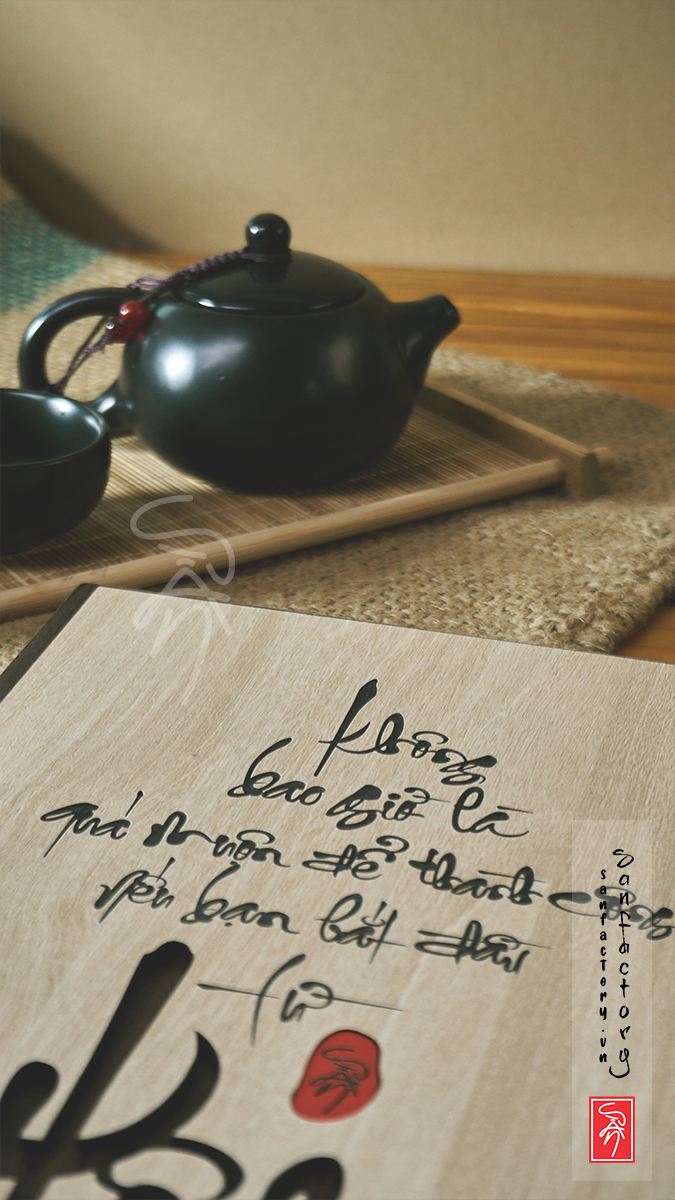 Không
bao giờ là
quá muộn để thành công
nếu bạn bắt đầu
từ
sanfactory.vn
Sanfactory